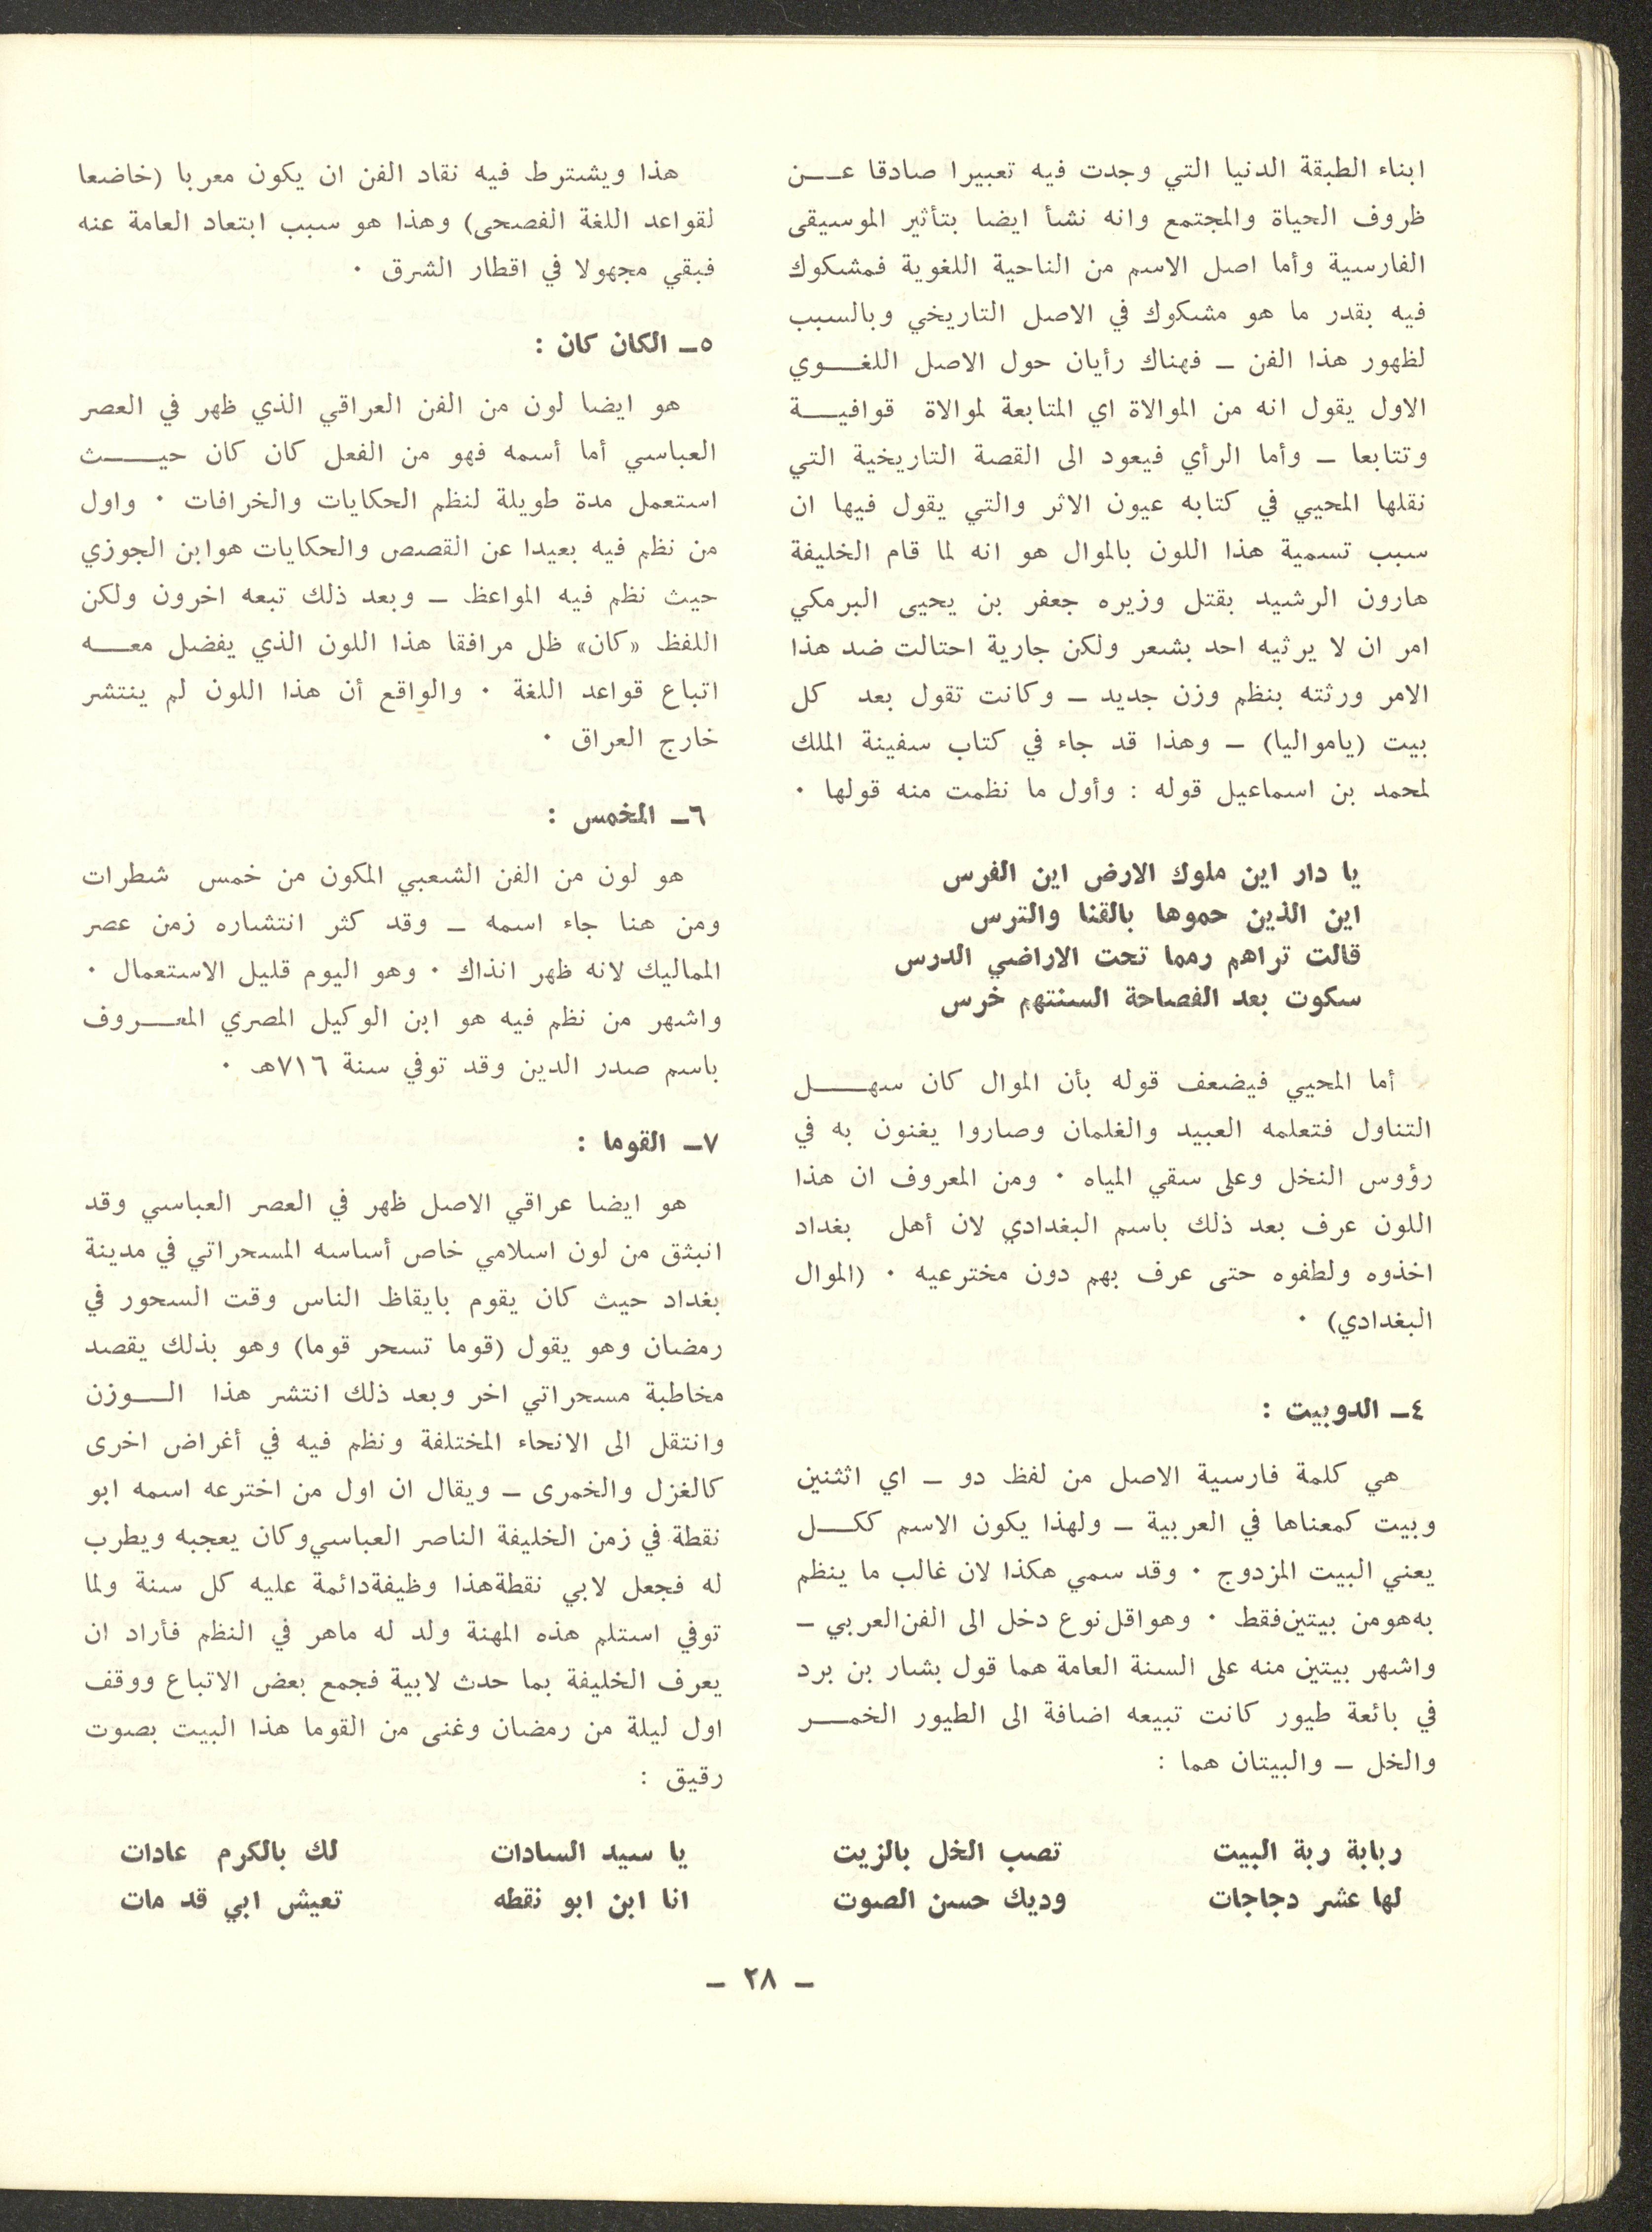 ابناء الطبقة الدنيا التي وجدت فيه تعبيرا صادقا عن
ظروف الحياة والمجتمع وانه نشأ ايضا بتأثير الموسيقى
الفارسية وأما اصل الاسم من الناحية اللغوية فمشكوك
فيه بقدر ما هو مشكوك في الاصل التاريخي وبالسبب
لظهور هذا الفن – فهناك رأيان حول الاصل اللغوي
الاول يقول انه من الموالاة اي المتابعة لموالاة قوافية
وتتابعا – وأما الرأي فيعود الى القصة التاريخية التي
نقلها المحيي في كتابه عيون الاثر والتي يقول فيها ان
سبب تسمية هذا اللون بالموال هو انه لما قام الخليفة
هارون الرشيد بقتل وزيره جعفر بن يحيى البرمكي
امر ان لا يرثيه احد بشعر ولكن جارية احتالت ضد هذا
الامر ورثته بنظم وزن جديد – وكانت تقول بعد كل
بيت (يامواليا) – وهذا قد جاء في كتاب سفينة الملك
لمحمد بن اسماعيل قوله : وأول ما نظمت منه قولها ٠
يا دار اين ملوك الارض اين الفرس
اين الذين حموها بالقنا والترس
قالت تراهم رمما تحت الاراضي الدرس
سكوت بعد الفصاحة السنتهم خرس
أما المحيي فيضعف قوله بأن الموال كان سهل
التناول فتعلمه العبيد والغلمان وصاروا يغنون به في
رؤوس النخل وعلى سقي المياه ٠ ومن المعروف ان هذا
اللون عرف بعد ذلك باسم البغدادي لان أهل بغداد
اخذوه ولطفوه حتى عرف بهم دون مخترعيه ٠ (الموال
البغدادي) ٠
٤– الدوبيت :
هي كلمة فارسية الاصل من لفظ دو – اي اثنين
وبيت كمعناها في العربية – ولهذا يكون الاسم ككل
يعني البيت المزدوج ٠ وقد سمي هكذا لان غالب ما ينظم
به هو من بيتين فقط ٠ وهو اقل نوع دخل الى الفن العربي –
واشهر بيتين منه على السنة العامة هما قول بشار بن برد
في بائعة طيور كانت تبيعه اضافة الى الطيور الخمر
والخل – والبيتان هما :
ربابة ربة البيت تصب الخل بالزيت
لها عشر دجاجات وديك حسن الصوت
هذا ويشترط فيه نقاد الفن ان يكون معربا (خاضعا
لقواعد اللغة الفصحى) وهذا هو سبب ابتعاد العامة عنه
فبقي مجهولا في اقطار الشرق ٠
٥– الكان كان :
هو ايضا لون من الفن العراقي الذي ظهر في العصر
العباسي أما أسمه فهو من الفعل كان كان حيث
استعمل مدة طويلة لنظم الحكايات والخرافات ٠ واول
من نظم فيه بعيدا عن القصص والحكايات هو ابن الجوزي
حيث نظم فيه المواعظ – وبعد ذلك تبعه اخرون ولكن
اللفظ «كان» ظل مرافقا هذا اللون الذي يفضل معه
اتباع قواعد اللغة ٠ والواقع أن هذا اللون لم ينتشر
خارج العراق ٠
٦– المخمس :
هو لون من الفن الشعبي المكون من خمس شطرات
ومن هنا جاء اسمه – وقد كثر انتشاره زمن عصر
المماليك لانه ظهر انذاك ٠ وهو اليوم قليل الاستعمال ٠
واشهر من نظم فيه هو ابن الوكيل المصري المعروف
باسم صدر الدين وقد توفي سنة ٧١٦هـ ٠
٧– القوما :
هو ايضا عراقي الاصل ظهر في العصر العباسي وقد
انبثق من لون اسلامي خاص أساسه المسحراتي في مدينة
بغداد حيث كان يقوم بايقاظ الناس وقت السحور في
رمضان وهو يقول (قوما تسحر قوما) وهو بذلك يقصد
مخاطبة مسحراتي اخر وبعد ذلك انتشر هذا الوزن
وانتقل الى الانحاء المختلفة ونظم فيه في أغراض اخرى
كالغزل والخمرى – ويقال ان اول من اخترعه اسمه ابو
نقطة في زمن الخليفة الناصر العباسي وكان يعجبه ويطرب
له فجعل لابي نقطة هذا وظيفة دائمة عليه كل سنة ولما
توفي استلم هذه المهنة ولد له ماهر في النظم فأراد ان
يعرف الخليفة بما حدث لابية فجمع بعض الاتباع ووقف
اول ليلة من رمضان وغنى من القوما هذا البيت بصوت
رقيق :
يا سيد السادات لك بالكرم عادات
انا ابن ابو نقطه تعيش ابي قد مات
– ٢٨ –